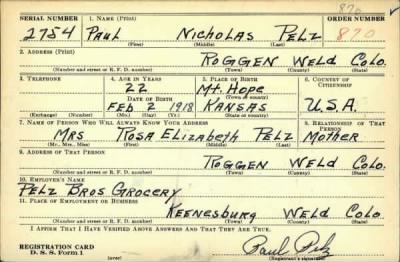 870
SERIAL NUMBER 1. NAME (Print) ORDER NUMBER
2754 Paul Nicholas Pelz 870
(First) (Middle) (Last)
2. ADDRESS (Print)
Roggen Weld Colo.
(Number and street or R. F. D. number) (Town) (County) (State)
3. TELEPHONE 4. AGE IN YEARS 5. PLACE OF BIRTH 6. COUNTRY OF CITIZENSHIP
22 Mt. Hope
DATE OF BIRTH (Town or county)
Feb 2 1918 Kansas U.S.A.
(Exchange) (Number) (Mo.) (Day) (Yr.) (State or country)
7. NAME OF PERSON WHO WILL ALWAYS KNOW YOUR ADDRESS 8. RELATIONSHIP OF THAT PERSON
Mrs Rosa Elizabeth Pelz Mother
(Mr., Mrs., Miss) (First) (Middle) (Last)
9. ADDRESS OF THAT PERSON
Roggen Weld Colo.
(Number and street or R. F. D. number) (Town) (County) (State)
10. EMPLOYER'S NAME
Pelz Bros Grocery
11. PLACE OF EMPLOYMENT OR BUSINESS
Keenesburg Weld Colo
(Number and street or R. F. D. number) (Town) (County) (State)
I AFFIRM THAT I HAVE VERIFIED ABOVE ANSWERS AND THAT THEY ARE TRUE.
REGISTRATION CARD
D. S. S. Form 1 (over) Paul Pelz
(Registrant's signature)